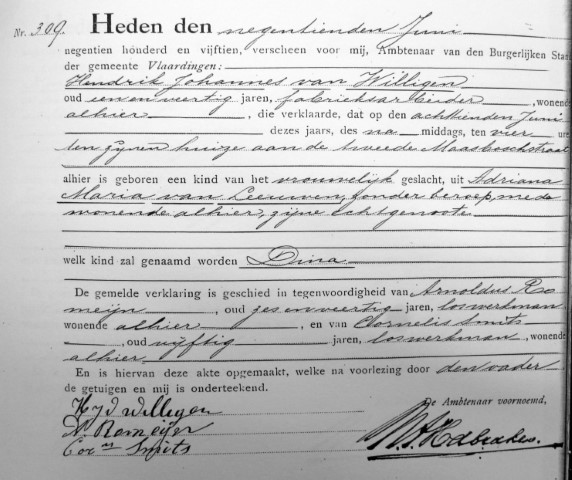 Nr. 309. Heden den negentienden Juni
negentien honderd en vijftien, verscheen voor mij, Ambtenaar van den Burgerlijken Stand
der gemeente Vlaardingen:
Hendrik Johannes van Willigen
oud een en veertig jaren, fabrieksarbeider, wonende
alhier, die verklaarde, dat op den achttienden Juni
dezes jaars, des na middags, ten vier ure
ten zijnen huize aan de tweede Maasboschstraat
alhier is geboren een kind van het vrouwelijk geslacht, uit Adriana
Maria van Leeuwen, zonder beroep, mede
wonende alhier, zijne echtgenoote
welk kind zal genaamd worden Dina
De gemelde verklaring is geschied in tegenwoordigheid van Arnoldus Ro
meijn, oud zes en veertig jaren, loswerkman
wonende alhier, en van Cornelis Smits
, oud vijftig jaren, loswerkman, wonende
alhier.
En is hiervan deze akte opgemaakt, welke na voorlezing door den vader
de getuigen en mij is onderteekend.
De Ambtenaar voornoemd,
HJ v Willegen
A. Romeijn
Cor Smits